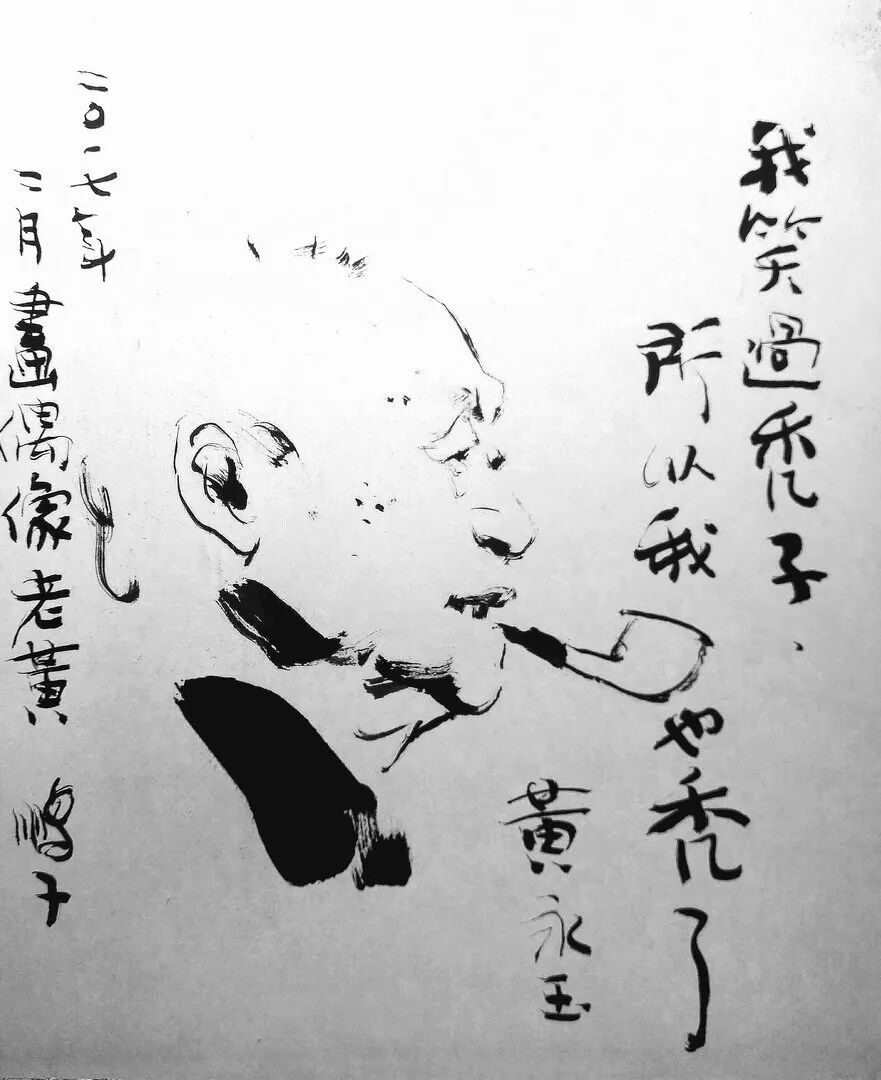 我笑過秃子、
所以我也秃了
黃永玉
二〇一七年
二月畫偶像老黃 鴨子